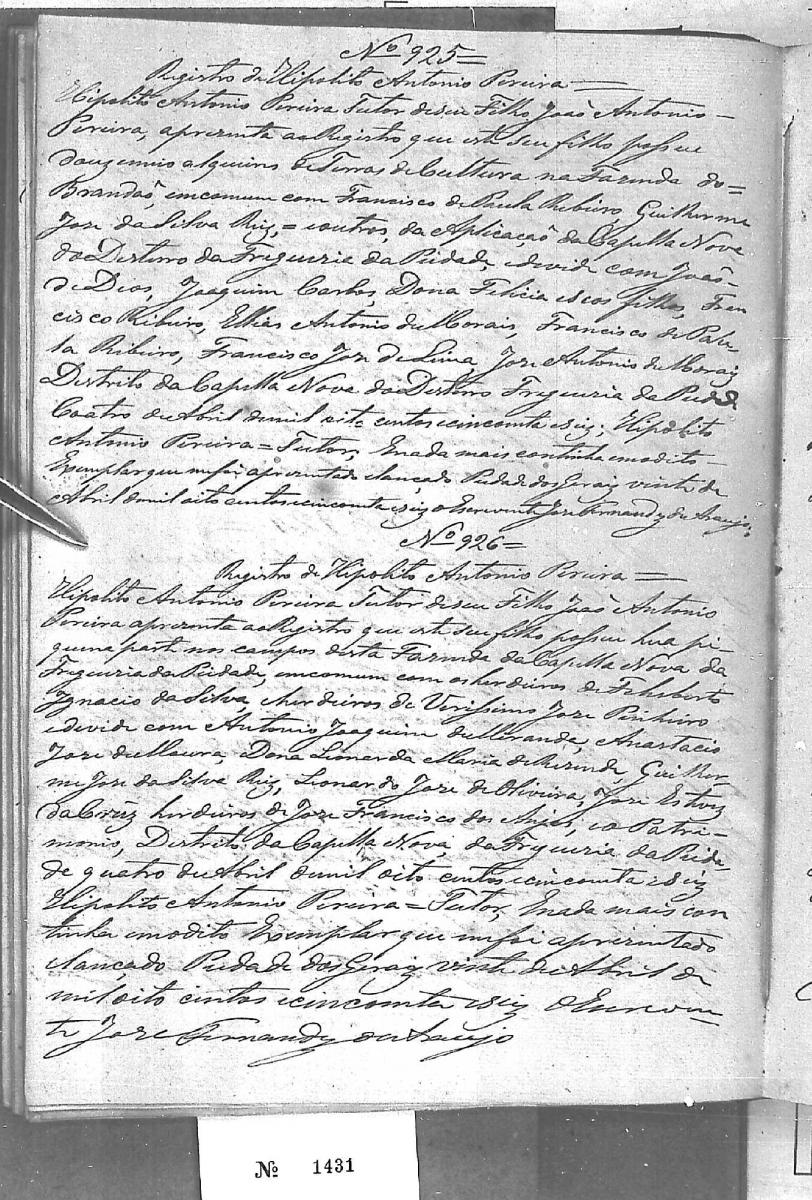 Nº 925=
Registro de Hipolito Antonio Pereira=
Hipolito Antonio Pereira Tutor de seu Filho João Antonio-
Pereira, aprezenta ao Registro que este seu filho possue
alqueires de Terras de Cultura na Fazenda do=
Brandaõ, emcomum com Francisco de Paula Ribeiro, Guilherme
Joze da Silva Reiz,= eoutros, da Aplicaçaõ da Capella Nova
do Desterro da Freguezia da Piedade, edevide com Joaõ-
de Dios, Joaquim Carlos, Dona Felicia eseos filhos, Fran
cisco Ribeiro, Ellias Antonio de Morais, Francisco de Pau-
la Ribeiro, Francisco Joze de Joze Antonio de Moraiz
Destrito da Capella Nova do Desterro Freguezia da Piedade
Coatro de Abril demil oito centos ecincoenta eseiz, Hipolito
Antonio Pereira= Tutor, Enada mais continha emodito-
Exemplar que mefoi aprezentado elançado Piedade dos Geraiz vinte de
Abril demil oito centos ecincoenta eseiz o Escrevente Joze Fernandez de Araujo,
Nº 926=
Registro de Hipolito Antonio Pereira=
Hipolito Antonio Pereira Tutor de seu Filho Joaõ Antonio
Pereira aprezenta ao Registro que este seu filho possue hua pe-
quena parte nos campos desta Fazenda da Capella Nova da
Freguezia da Piedade, emcomum com osherdeiros de Felisberto
Ignacio da Silva, eherdeiros de Verissimo Joze Pinheiro
edevide com Antonio Joaquim de Miranda, Anastacio
Joze de Moura, Dona Lionarda Maria de Rezende, Guilher
me Joze da Silva Reiz, Leonardo Joze de Oliveira, Joze Estevz
da Crûz herdeiros de Joze Francisco dos Anjos, eo Patri-
monio, Destrito da Capella Nova, da Freguezia da Pieda,
de quatro de Abril demil oito centos ecincoenta eseiz
Hipolito Antonio Pereira= Tutor, Enada mais con
tinha emodito Exemplar que mefoi aprezentado
elançado Piedade dos Geraiz vinte de Abril de
mil oito centos ecincoenta eseiz o Escreven-
te Joze Fernandez de Araujo
Nº 1431